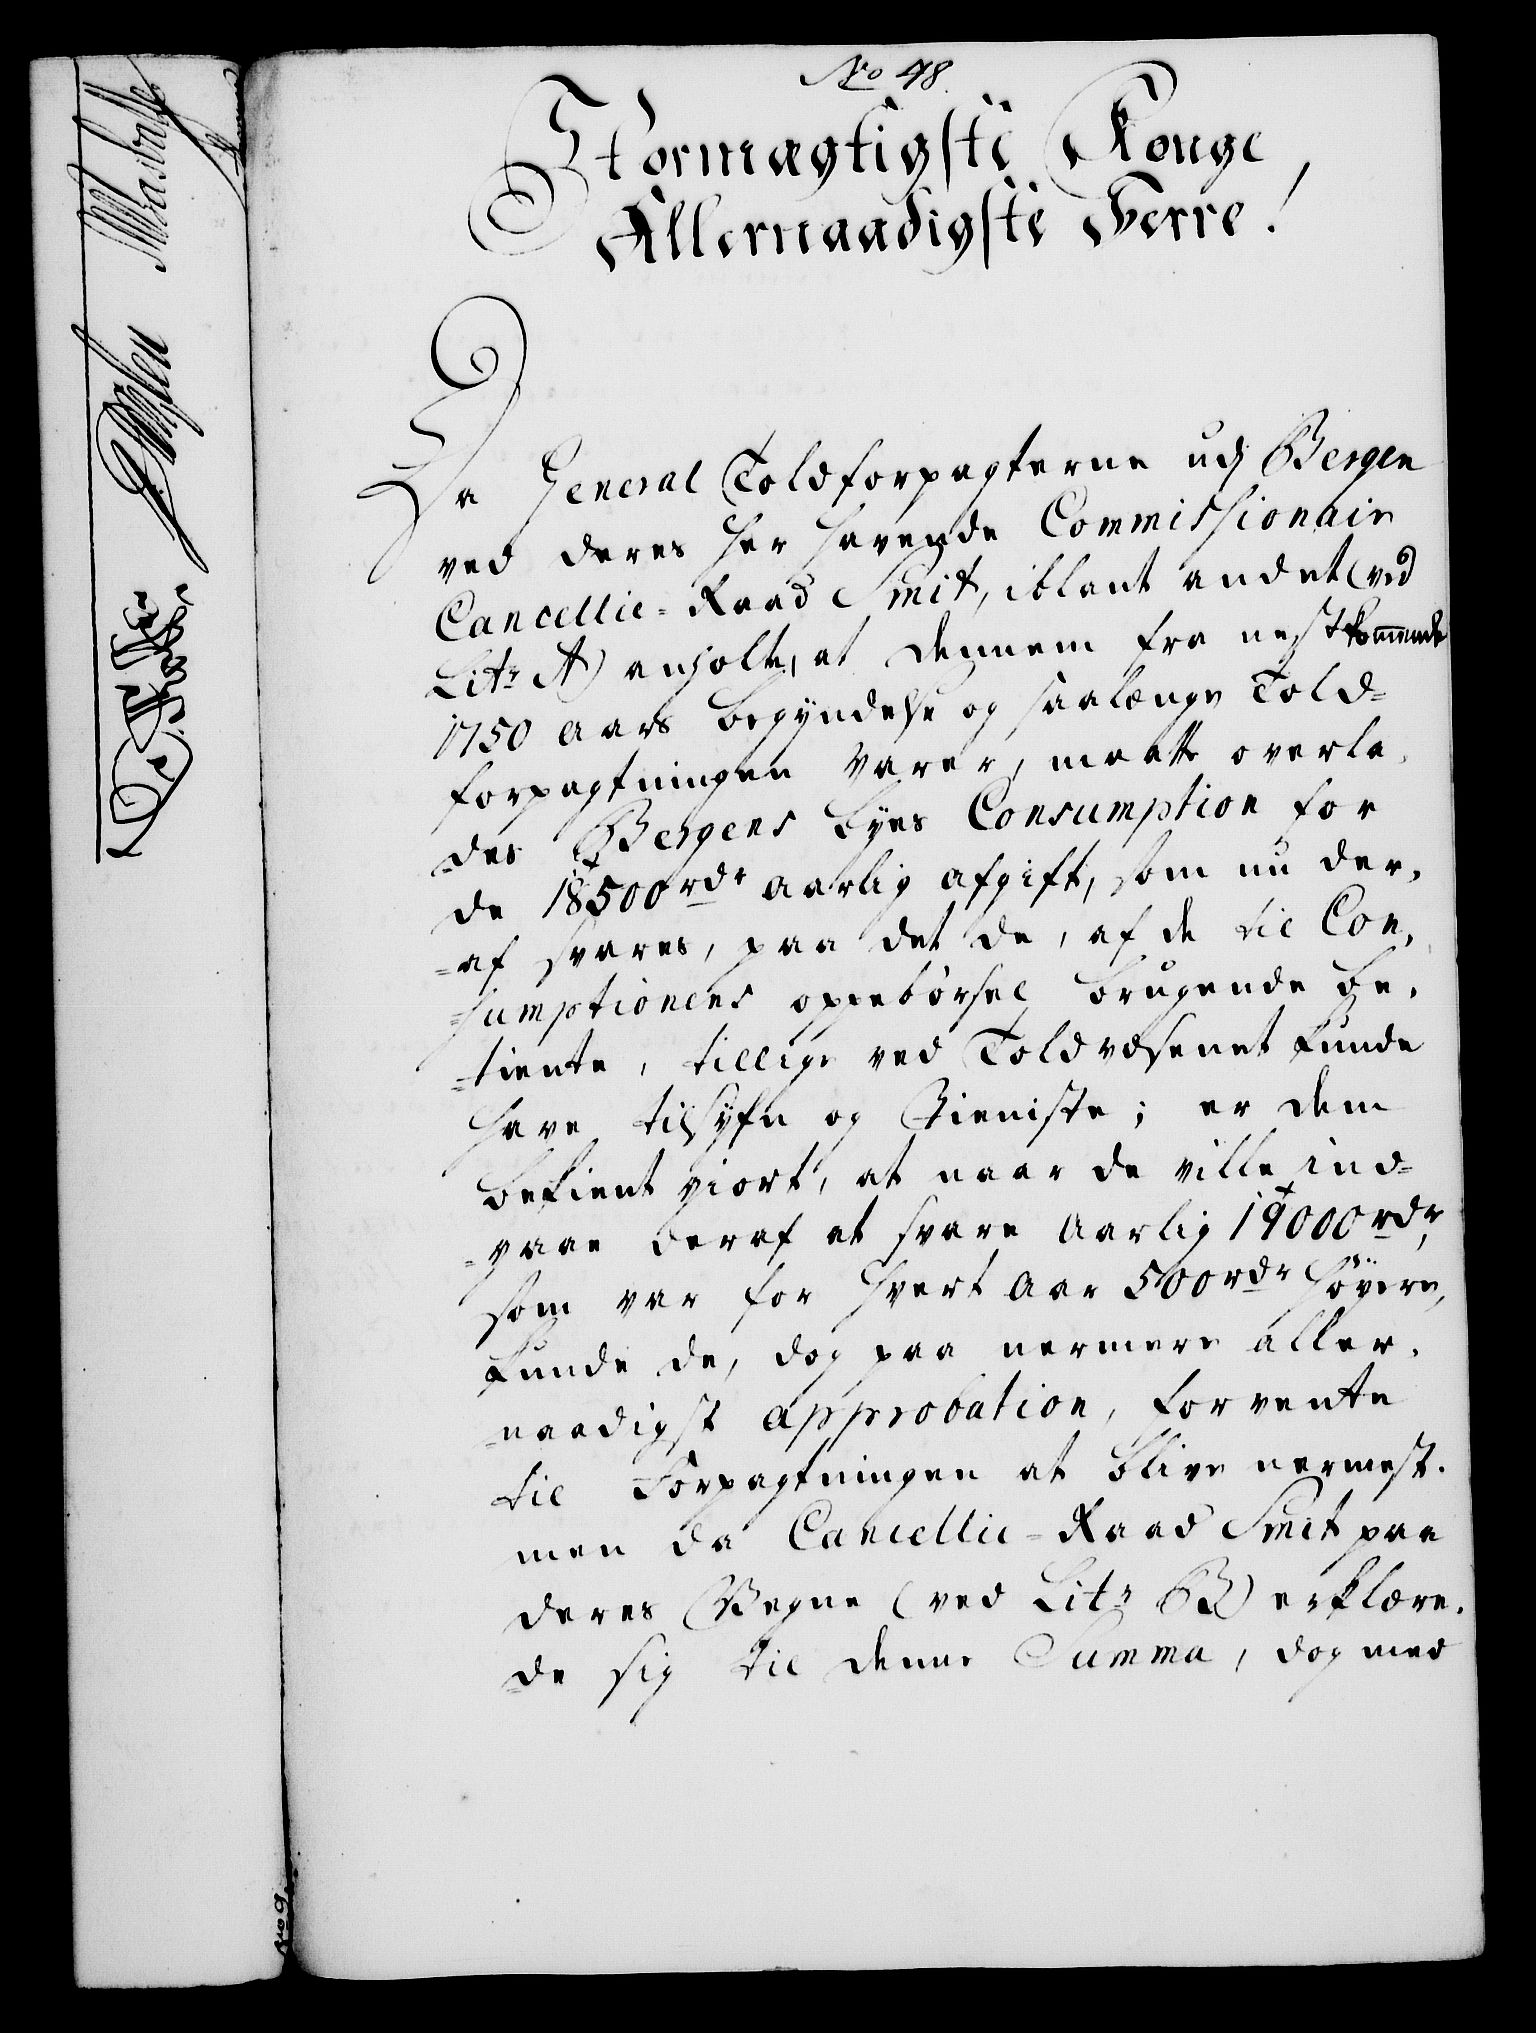 No 48.
Stormægtigste Konge
Allernaadigste Herre!
Da General Toldforpagterne udj Bergen
ved deres her havende Commissionair
Cancellie-Raad Smit, iblant andet (ved
Litr A) anholte, at dennem fra nestkommende
1750 Aars begyndelse og saalænge Told-
forpagtningen varer, maatte overla-
des Bergens byes Consumption for
de 18500 rdr aarlig afgift, som nu der-
-af svares, paa det de, af de til Con-
-sumptionens oppebørsel brugende be-
-tiente, tillige ved Toldvæsenet kunde
have tilsyfn og Tieniste; er dem
bekient giort, at naar de ville ind-
-gaae deraf at svare Aarlig 19000 rdr,
som var for hvert Aar 500 rdr høyere,
kunde de, dog paa nermere aller-
-naadigst approbation, forvente
til Forpagtningen at blive nermest.
men da Cancellie-Raad Smit paa
deres Vegne (ved Litr B) erklære-
-de sig til denne Summa, dog med